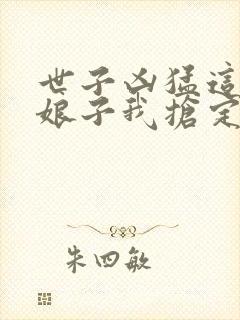 世子凶猛這
娘子我搶定
朱四敏